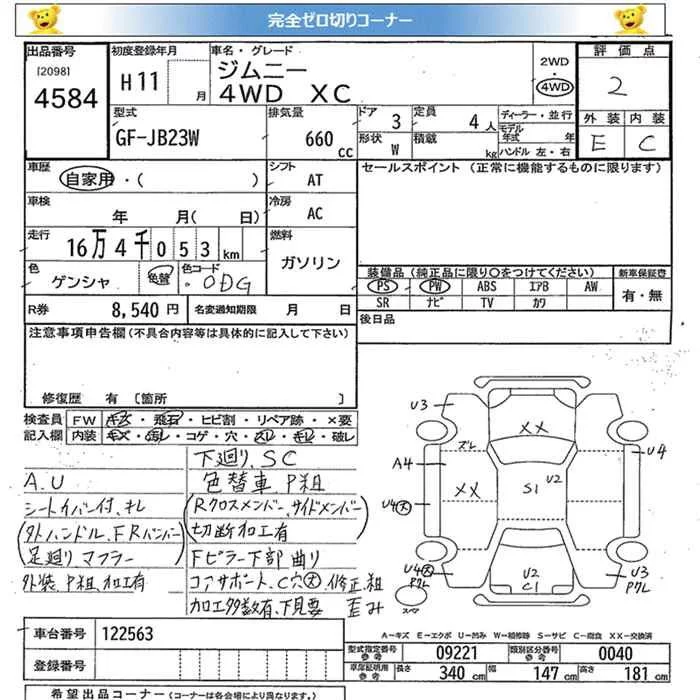 完全ゼロ切りコーナー
出品番号
[2098]
4584
初度登録年月
H11 月
車名・グレード
ジムニー
4WD XC
2WD
4WD
評価点
2
外装 内装
E C
型式
GF-JB23W
排気量
660 cc
ドア 3
形状 W
定員 4 人
積載 kg
ディーラー・並行
モデル年式 年
ハンドル 左・右
車歴
自家用・( )
シフト
AT
セールスポイント (正常に機能するものに限ります)
車検
年 月( 日)
冷房
AC
走行
16万4千053km
燃料
ガソリン
色
ゲンシャ
色替
色コード
0DG
装備品(純正品に限り○をつけてください)
新車保証書
PS PW ABS エアB AW
SR ナビ TV カワ
有・無
R券 8,540円
名変通知期限 月 日
後日品
注意事項申告欄(不具合内容等は具体的に記入して下さい)
修復歴 有 〔箇所 〕
検査員記入欄
FW キズ・飛石・ヒビ割・リペア跡・×要
内装 キズ・汚レ・コゲ・穴・スレ・キレ・破レ
A.U
シートイバー付、キレ
(外ハンドル、FRバンパー
足廻り、マフラー
外装、P粗、加工有
下廻り、SC
色替車 P粗
(Rクロスメンバー、サイドメンバー)
切断加工有
Fピラー下部曲り
コアサポート、C穴大、修正、粗
加工多数有、下見要 歪み
U3
XX
ズレ
A4
U4
U2
XX
S1
U4大
U4大
Pクレ
U2
C1
U3
Pクレ
スペア
A-キズ E-エクボ U-凹み W-補修跡 S-サビ C-腐食 XX-交換済
車台番号
122563
登録番号
型式指定番号
参考
09221
類別区分番号
参考
0040
車庫証明用
参考
長さ 340 cm
幅 147 cm
高さ 181 cm
希望出品コーナー (コーナーは各会場により異なります。)